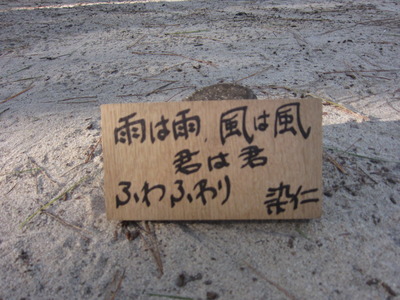 雨は雨、風は風
君は君
ふわふわり 染仁